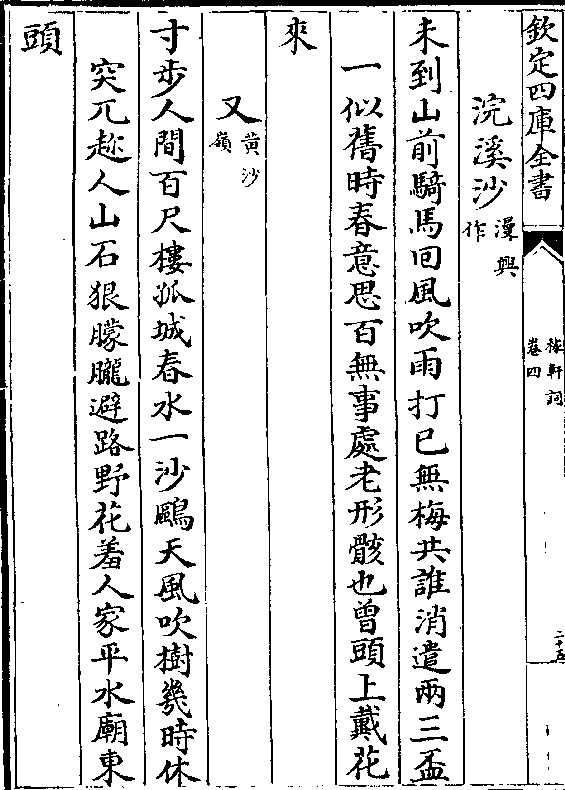 欽定四庫全書
稼軒詞
卷四
二十五
浣溪沙漫興作
未到山前騎馬回風吹雨打已無梅共誰消遣兩三盃
一似舊時春意思百無事處老形骸也曾頭上戴花
來
又黄沙嶺
寸步人間百尺樓孤城春水一沙鷗天風吹樹幾時休
突兀趂人山石狠朦朧避路野花羞人家平水廟東
頭